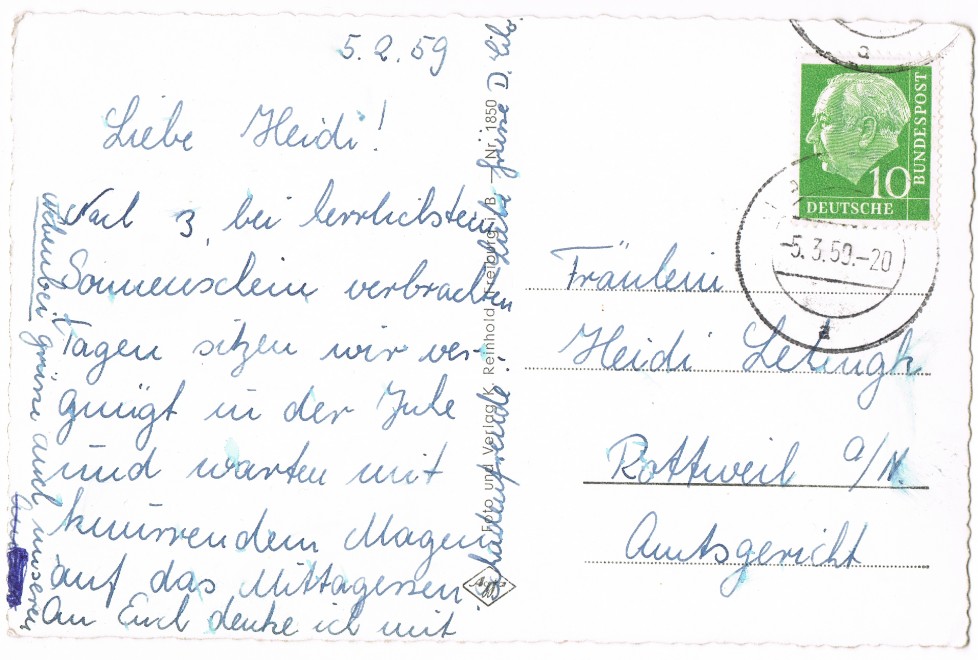 5.2.59
Liebe Heidi!
Nach 3, bei herrlichstem
Sonnenschein verbrachten
Tagen sitzen wir ver-
gnügt in der Jute
und warten mit
knurrendem Magen
auf das Mittagessen.
An Euch denke ich mit
Schadenfreude! Liebe Grüsse D. Lilo
Nebenbei grüsse auch unseren
Foto und Verlag K. Reinhold, Freiburg i. B. — Nr. 1850
DEUTSCHE
BUNDESPOST
10
-5.3.59.-20
a
a
Fräulein
Heidi
Rottweil a/N.
Amtsgericht